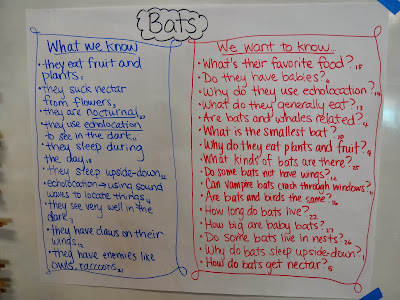 Bats
What we know
• they eat fruit and
plants.
• they suck nectar
from flowers.
• they are nocturnal.
• they use echolocation
to see in the dark.
• they sleep during
the day.
• they sleep upside-down.
• echolocation → using sound
waves to locate things.
• they see very well in the
dark.
• they have claws on their
wings.
• they have enemies like
owls, raccoons.
We want to know...
• What's their favorite food? 15
• Do they have babies?
• Why do they use echolocation? 14
• What do they generally eat? 13
• Are bats and whales related? 4
• What is the smallest bat? 10
• Why do they eat plants and fruit? 9
• What kinds of bats are there? 25
• Do some bats not have wings?
• Can vampire bats crash through windows?
• Are bats and birds the same?
• How long do bats live? 22
• How big are baby bats? 27
• Do some bats live in nests? 26
• Why do bats sleep upside-down?
• How do bats get nectar? 5